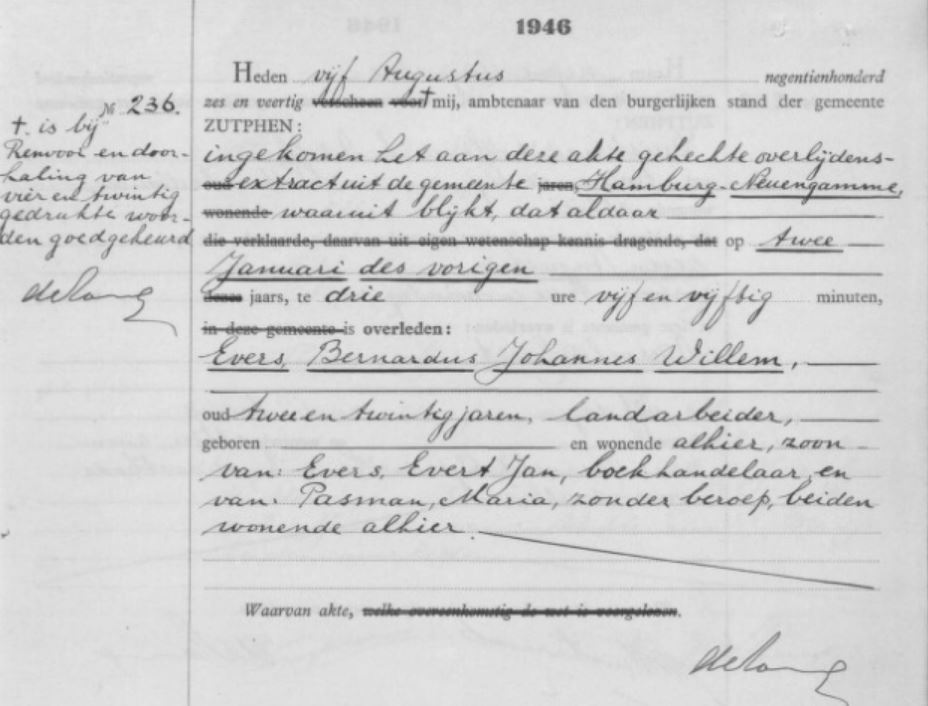 1946
Heden vijf Augustus negentienhonderd
zes en veertig verscheen voor † mij, ambtenaar van den burgerlijken stand der gemeente
ZUTPHEN:
ingekomen het aan deze akte gehechte overlijdens-
oud extract uit de gemeente jaren, Hamburg-Neuengamme,
wonende waaruit blijkt, dat aldaar
die verklaarde, daarvan uit eigen wetenschap kennis dragende, dat op twee
Januari des vorigen
dezes jaars, te drie ure vijf en vijftig minuten,
in deze gemeente is overleden:
Evers, Bernardus Johannes Willem,
oud twee en twintig jaren, landarbeider,
geboren en wonende alhier, zoon
van: Evers, Evert Jan, boekhandelaar en
van: Pasman, Maria, zonder beroep, beiden
wonende alhier.
Waarvan akte, welke overeenkomstig de wet is voorgelezen.
№ 236.
†. is bij
Renvooi en door-
haling van
vier en twintig
gedrukte woor-
den goedgekeurd